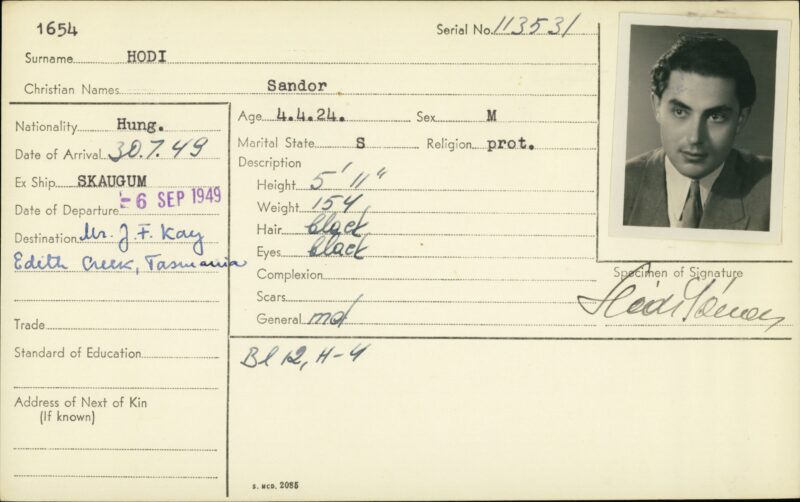 1654
Serial No. 113531
Surname HODI
Christian Names Sandor
Age 4.4.24. Sex M
Nationality Hung.
Marital State S Religion prot.
Date of Arrival 30.7.49
Description
Ex Ship SKAUGUM
Height 5' 11"
Date of Departure - 6 SEP 1949
Weight 154
Destination Mr. J. F. Kay
Hair black
Edith Creek, Tasmania
Eyes black
Complexion
Specimen of Signature
Scars
Trade
General
Standard of Education
Bl 12, H-4
Address of Next of Kin
(If known)
S. MCD. 2085